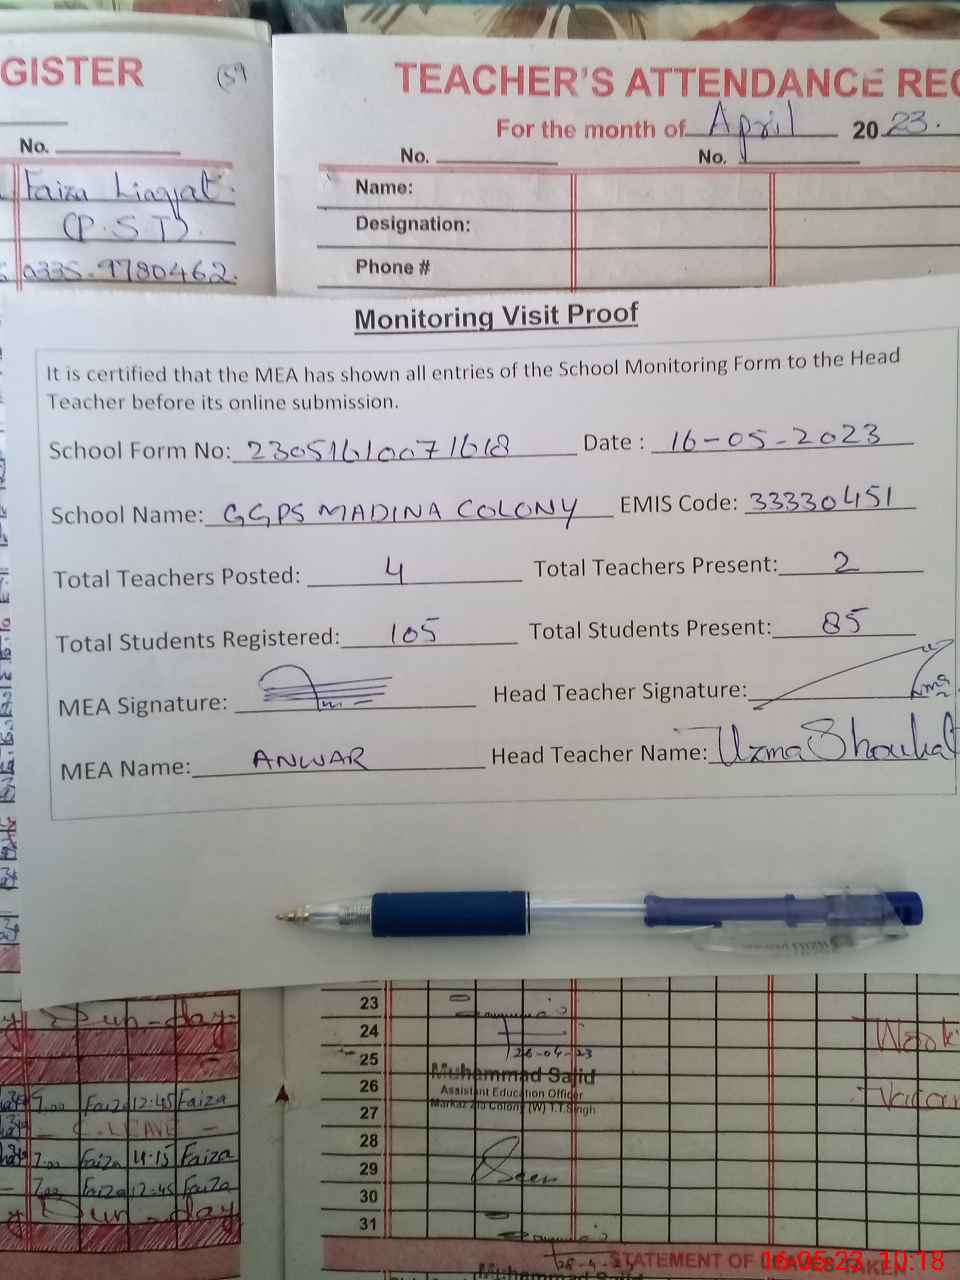 GISTER
159
No.
Faiza Liaqat.
(P.S.T).
0335-9780462.
TEACHER'S ATTENDANCE REC
For the month of April 2023.
No. No.
Name:
Designation:
Phone #
Monitoring Visit Proof
It is certified that the MEA has shown all entries of the School Monitoring Form to the Head
Teacher before its online submission.
School Form No: 23051610071618 Date : 16-05-2023
School Name: GGPS MADINA COLONY EMIS Code: 33330451
Total Teachers Posted: 4 Total Teachers Present: 2
Total Students Registered: 105 Total Students Present: 85
MEA Signature: Head Teacher Signature:
MEA Name: ANWAR Head Teacher Name: Uzma Shoukat
Sun-day
7.00 Faiza 12:45 Faiza
C.LEAVE
7.00 Faiza 11:15 Faiza
7.00 Faiza 12:45 Faiza
Sun-day
23
24
26-04-23
25
Muhammad Sajid
26
Assistant Education Officer
Markaz Zia Colony (W) T.T.Singh
27
28
29 Seen
30
31
STATEMENT OF
Muhammad Sajid
16-05-23 10:18